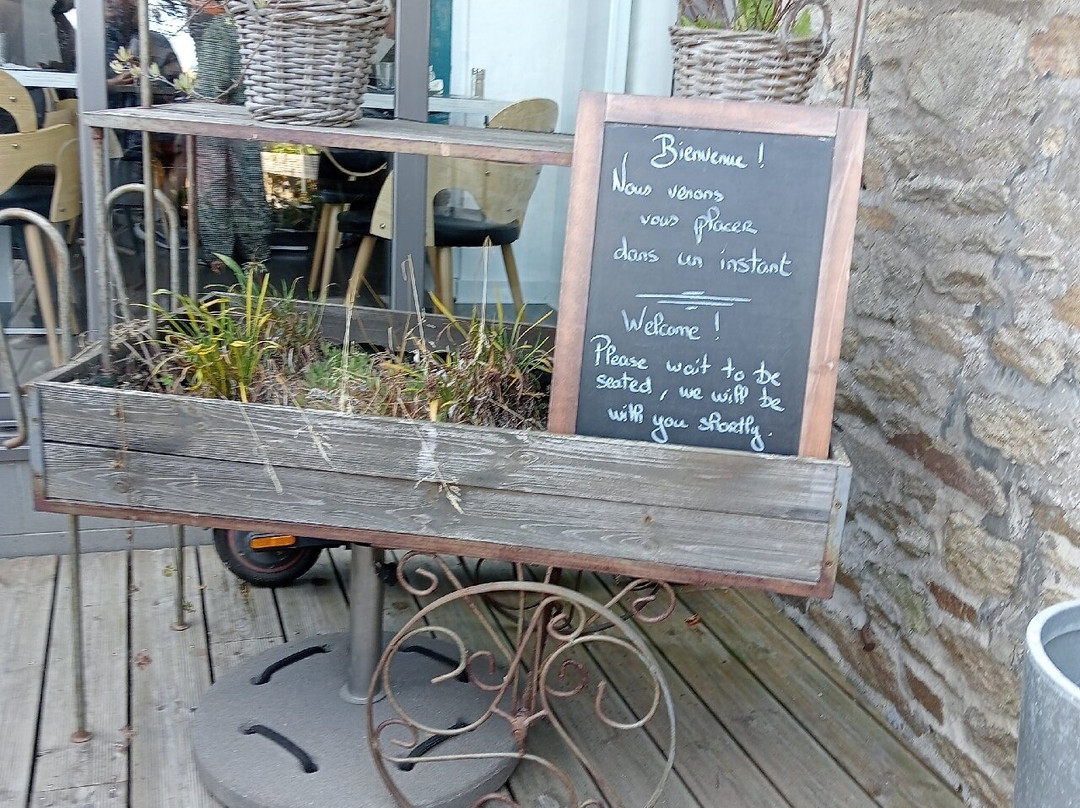 Bienvenue !
Nous venons
vous placer
dans un instant
Welcome !
Please wait to be
seated, we will be
with you shortly.